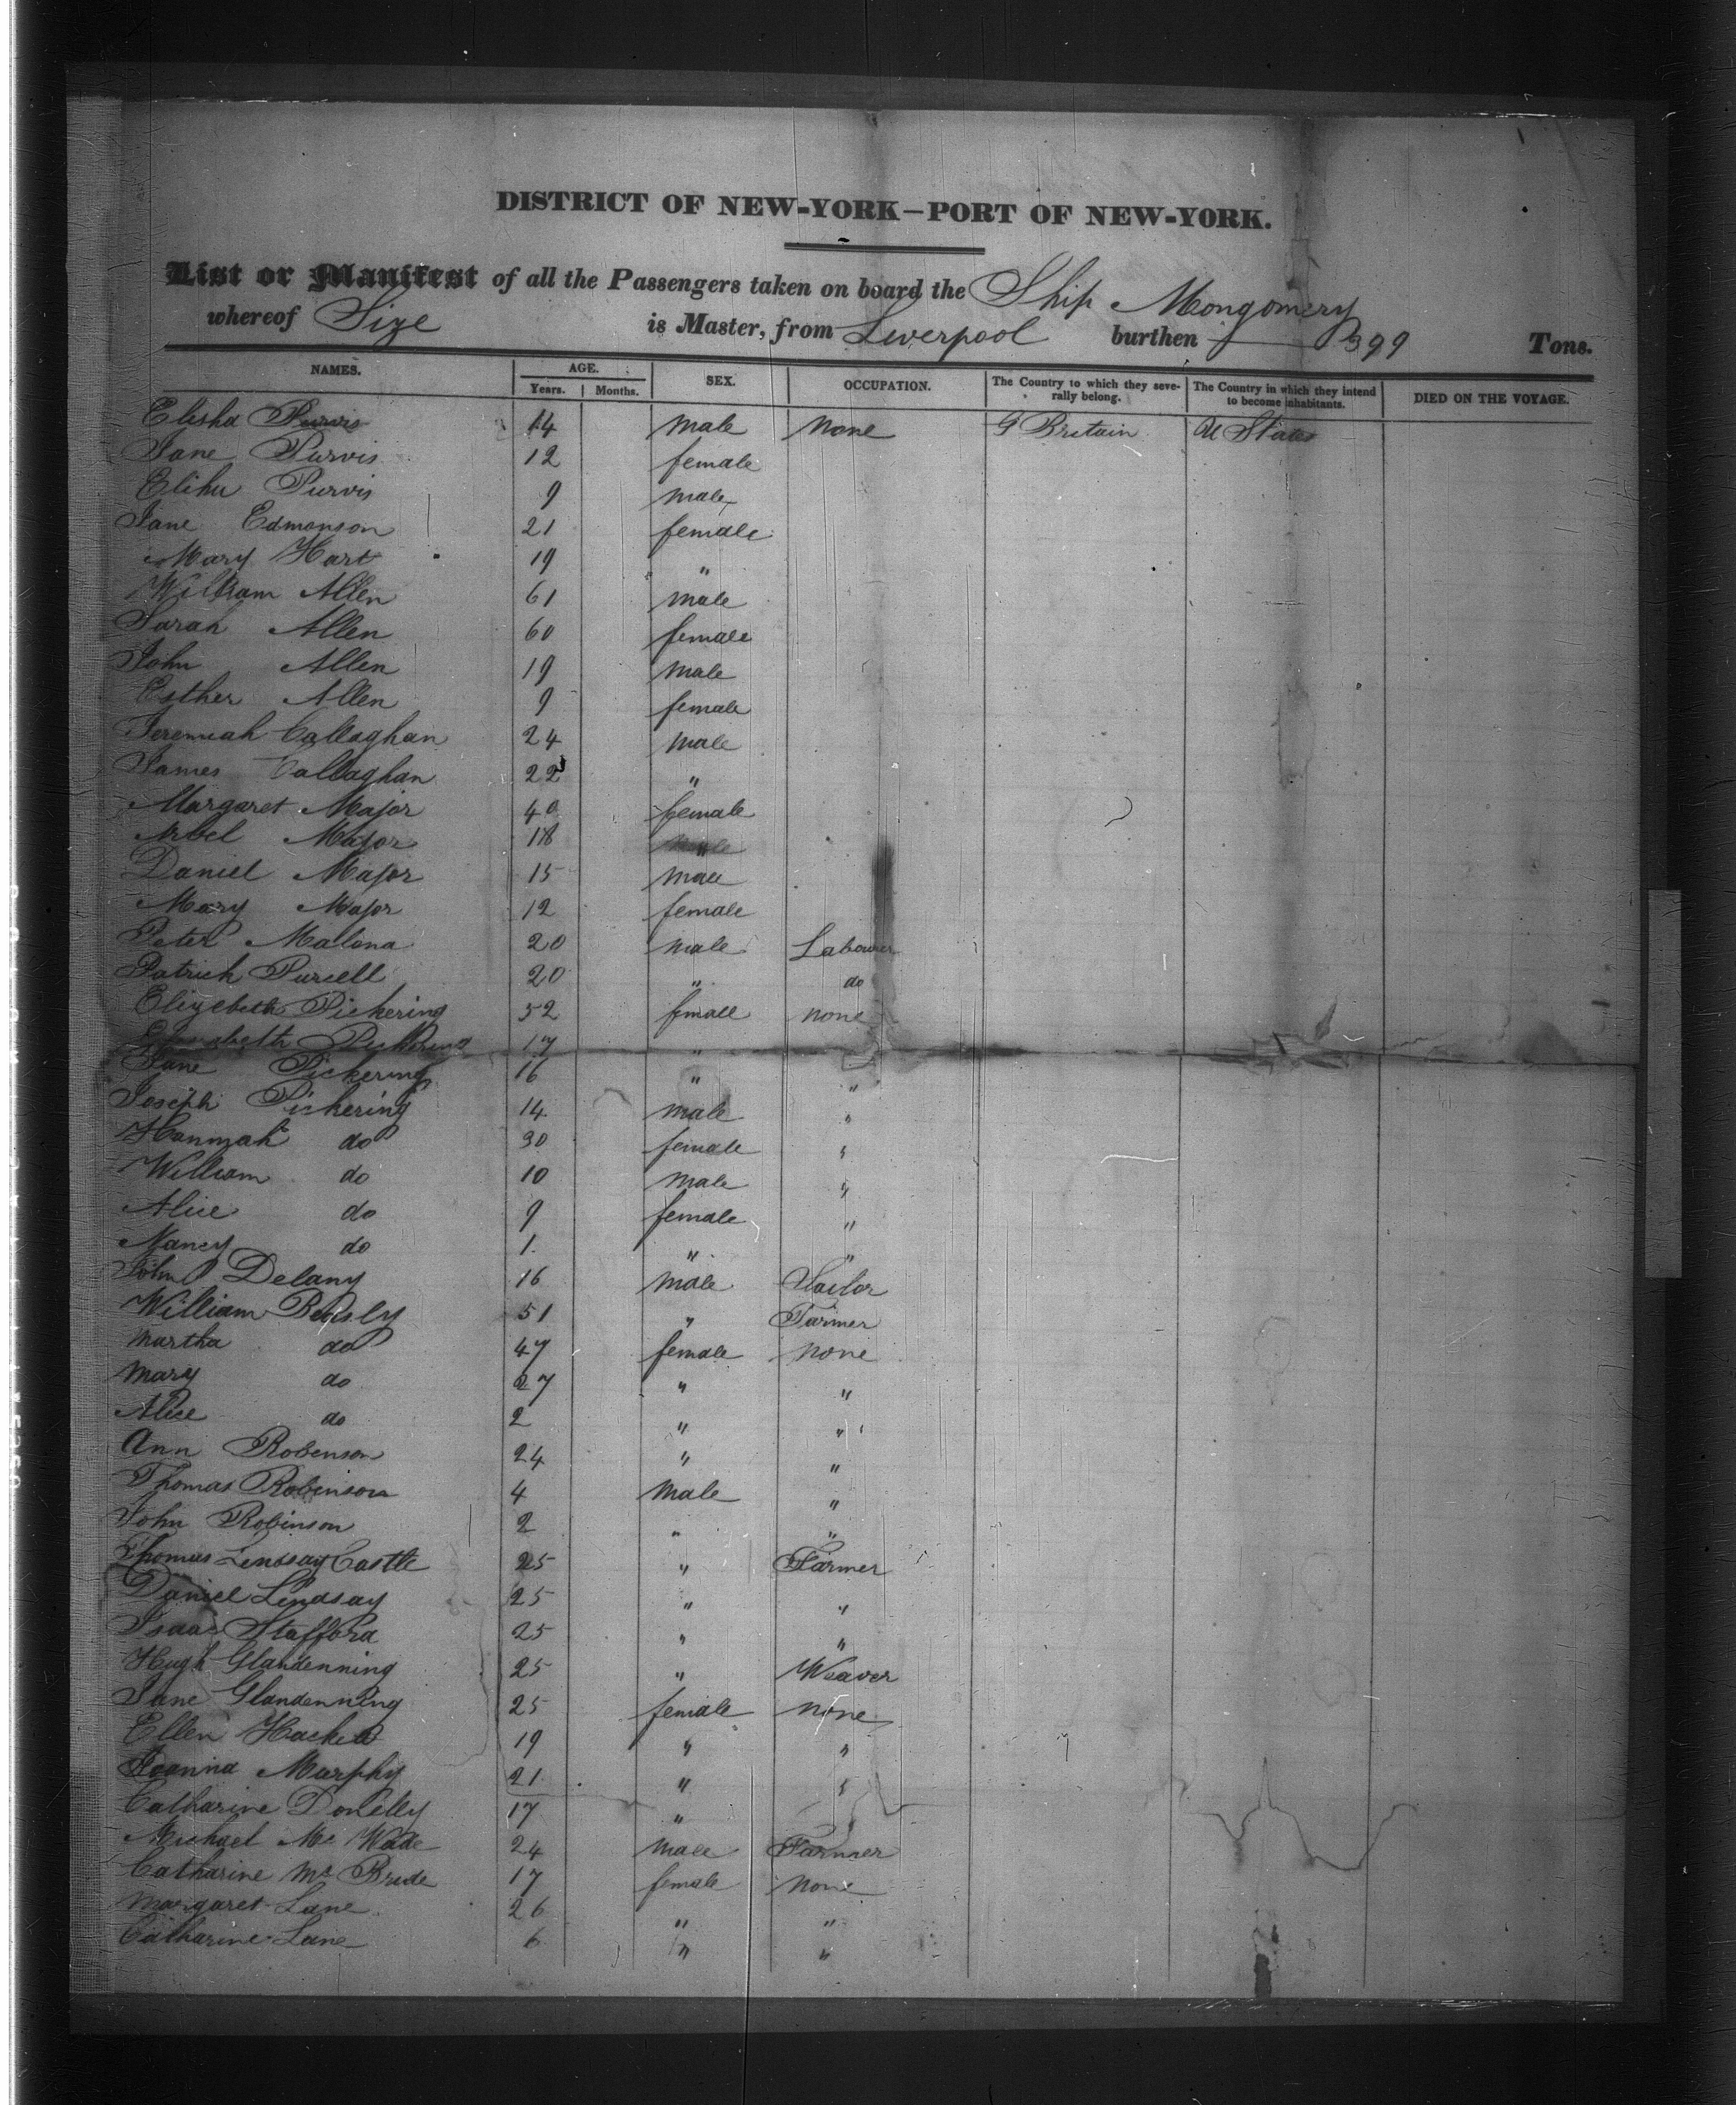 DISTRICT OF NEW-YORK—PORT OF NEW-YORK.
List or Manifest of all the Passengers taken on board the Ship Mongomery
whereof Size is Master, from Liverpool burthen 399 Tons.
NAMES. AGE. Years. Months. SEX. OCCUPATION. The Country to which they severally belong. The Country in which they intend to become inhabitants. DIED ON THE VOYAGE.
Elisha Purvis 14 male None G Britain U States
Jane Purvis 12 female
Elihu Purvis 9 male
Jane Edmonson 21 female
Mary Hart 19 "
William Allen 61 male
Sarah Allen 60 female
John Allen 19 male
Esther Allen 9 female
Jeremiah Callaghan 24 male
James Callaghan 22 "
Margaret Major 40 female
Major 18 "
Daniel Major 15 male
Mary Major 12 female
Peter Malona 20 male Labourer
Patrick Purcell 20 " do
Elizebeth Pickering 52 female none
Pickering 17 "
Jane Pickering 16 " "
Joseph Pickering 14 male "
Hannah do 30 female "
William do 10 male "
Alice do 9 female "
Nancy do 1 " "
John Delany 16 male
William 51 " Farmer
Martha do 47 female none
Mary do 27 " "
Alice do 2 " "
Ann Robenson 24 " "
Thomas Robinson 4 male "
John Robinson 2 " "
Thomas Lindsay Castle 25 " Farmer
Daniel Lindsay 25 " "
Isaac Stafford 25 " "
Hugh Glandenning 25 " Weaver
Jane Glandenning 25 female none
Ellen 19 " "
Joanna Murphy 21 " "
Catharine Donelly 17 "
Michael Mc Wade 24 male Farmer
Catharine Mc Bride 17 female none
Margaret Lane 26 " "
Catharine Lane 6 " "